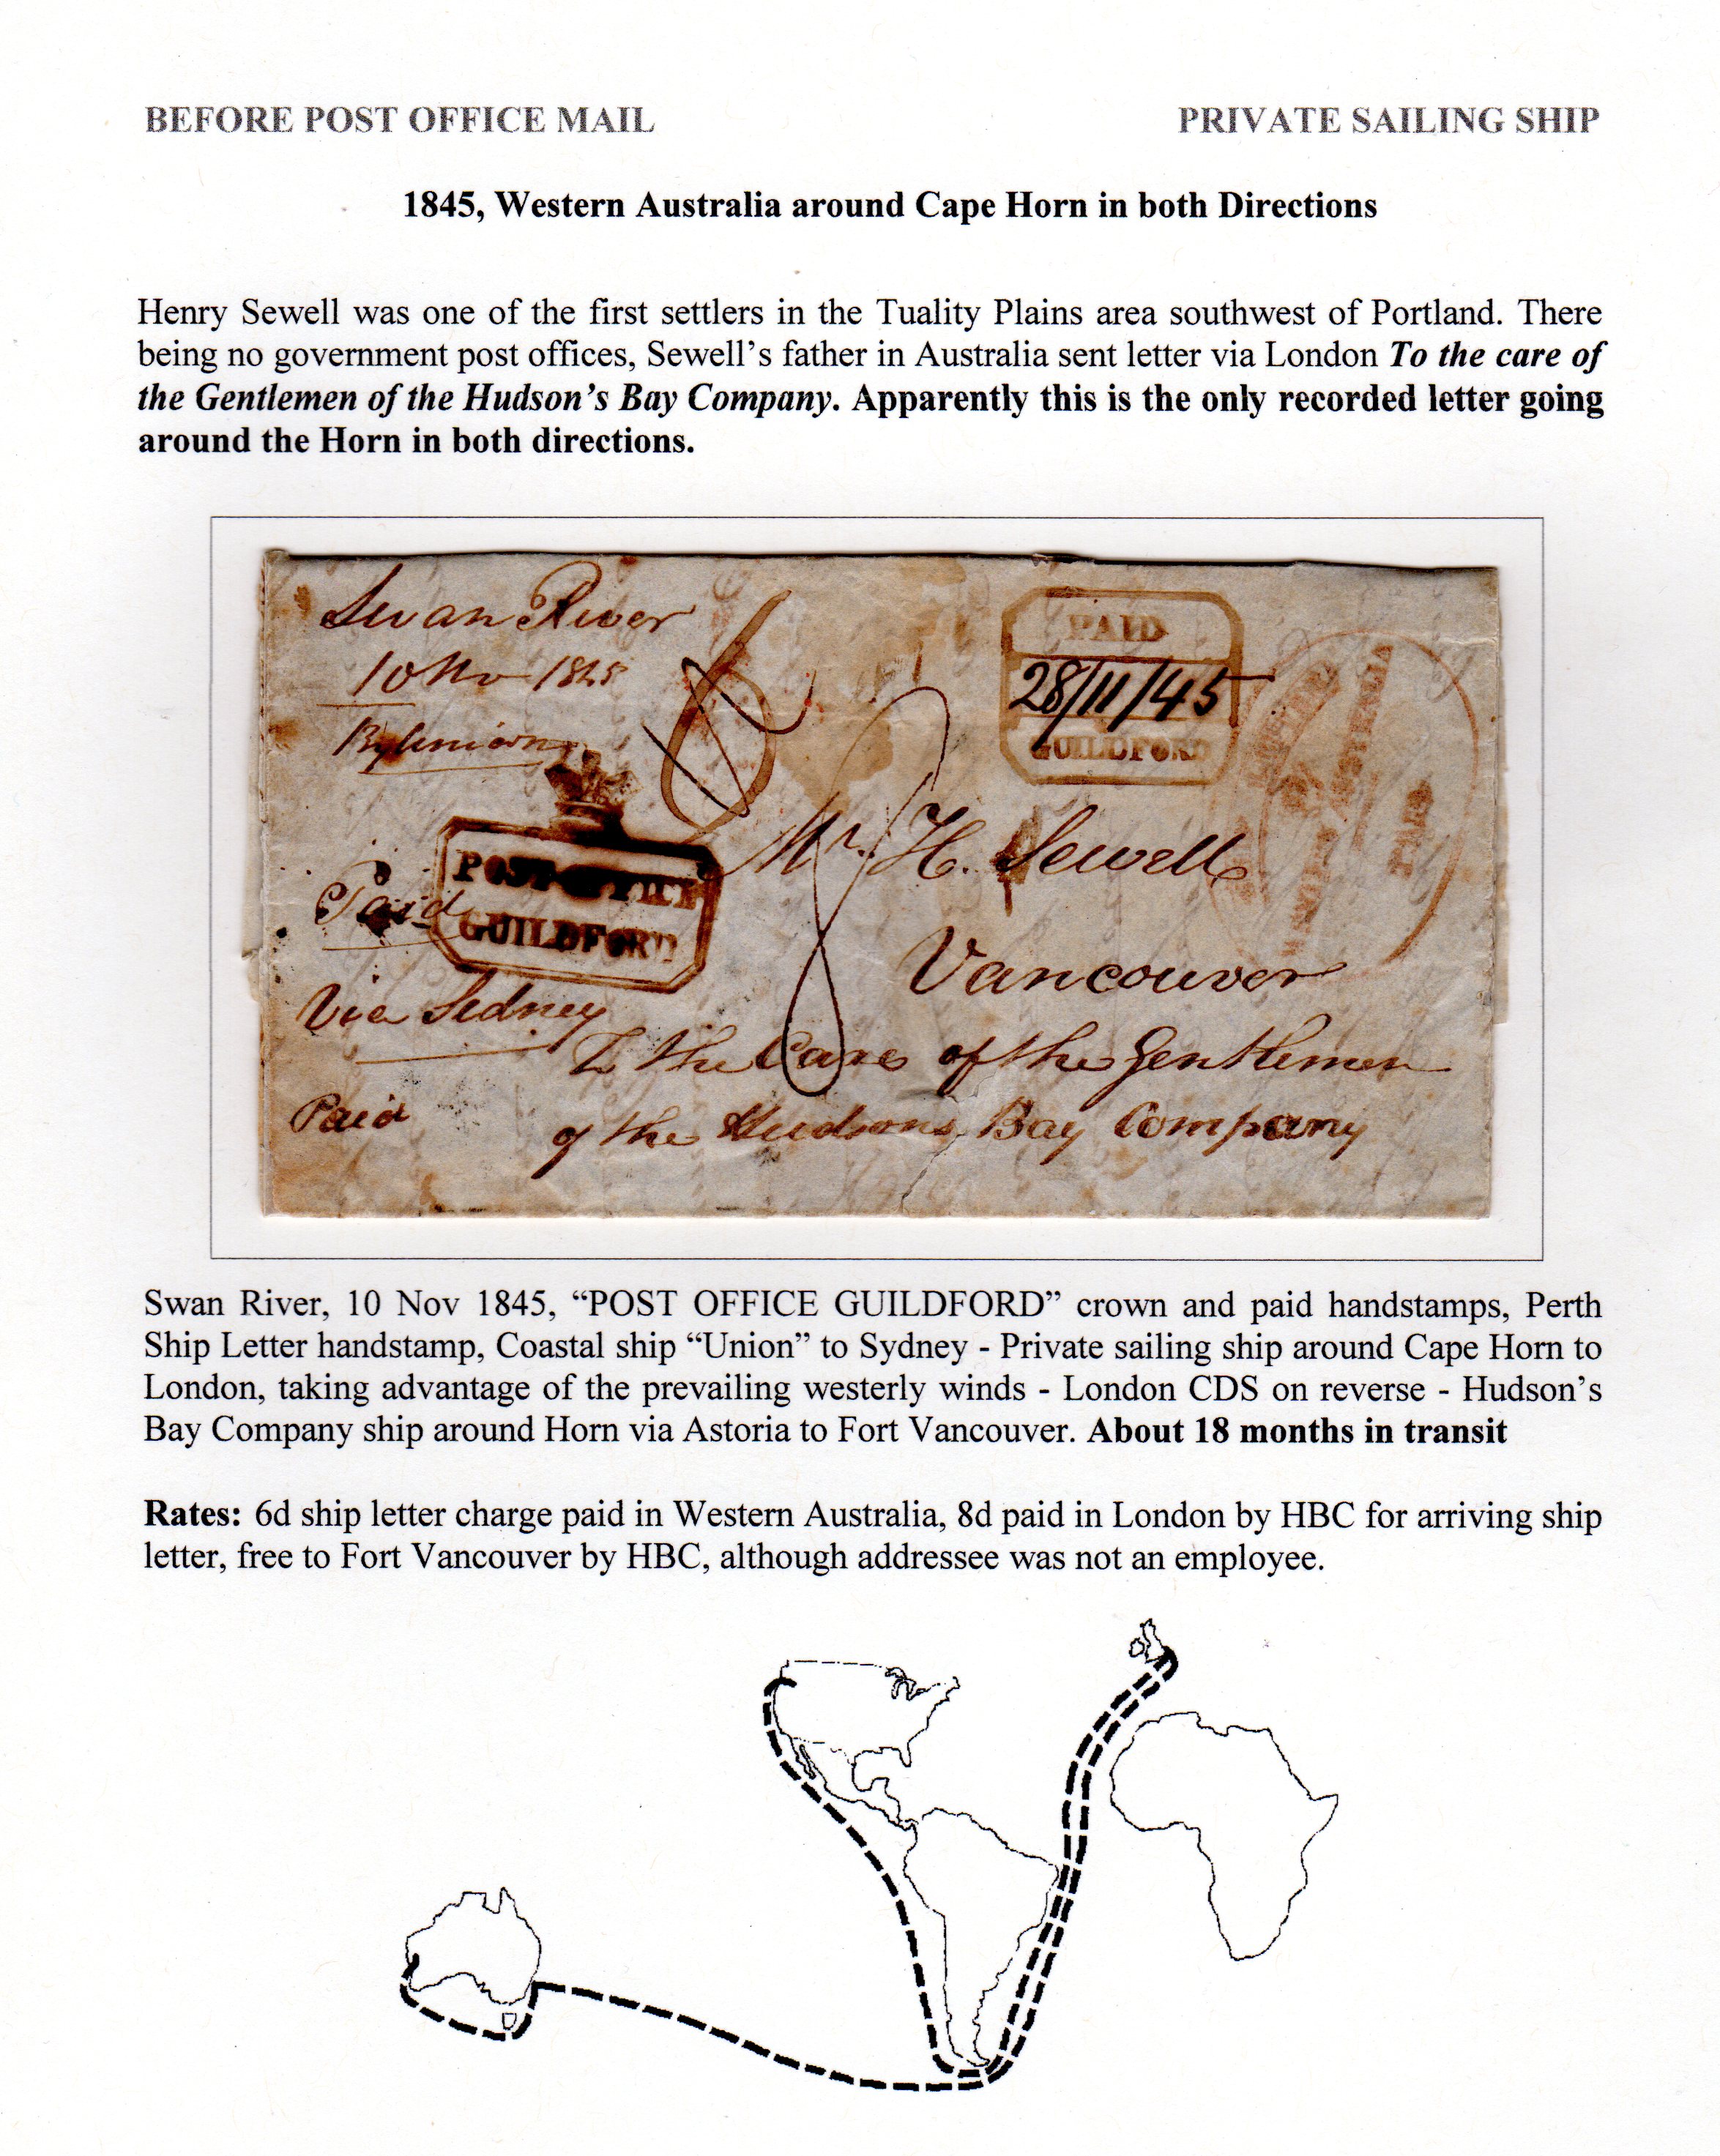 BEFORE POST OFFICE MAIL
PRIVATE SAILING SHIP
1845, Western Australia around Cape Horn in both Directions
Henry Sewell was one of the first settlers in the Tuality Plains area southwest of Portland. There
being no government post offices, Sewell's father in Australia sent letter via London To the care of
the Gentlemen of the Hudson's Bay Company. Apparently this is the only recorded letter going
around the Horn in both directions.
Swan River
10 Nov 1845
By Union
PAID
28/11/45
GUILDFORD
6
8
POST OFFICE
GUILDFORD
Paid
PAID
Mr. H. Sewell
Vancouver
Via Sidney
To the Care of the Gentlemen
Paid
of the Hudsons Bay Company
Swan River, 10 Nov 1845, “POST OFFICE GUILDFORD” crown and paid handstamps, Perth
Ship Letter handstamp, Coastal ship “Union” to Sydney - Private sailing ship around Cape Horn to
London, taking advantage of the prevailing westerly winds - London CDS on reverse - Hudson's
Bay Company ship around Horn via Astoria to Fort Vancouver. About 18 months in transit
Rates: 6d ship letter charge paid in Western Australia, 8d paid in London by HBC for arriving ship
letter, free to Fort Vancouver by HBC, although addressee was not an employee.